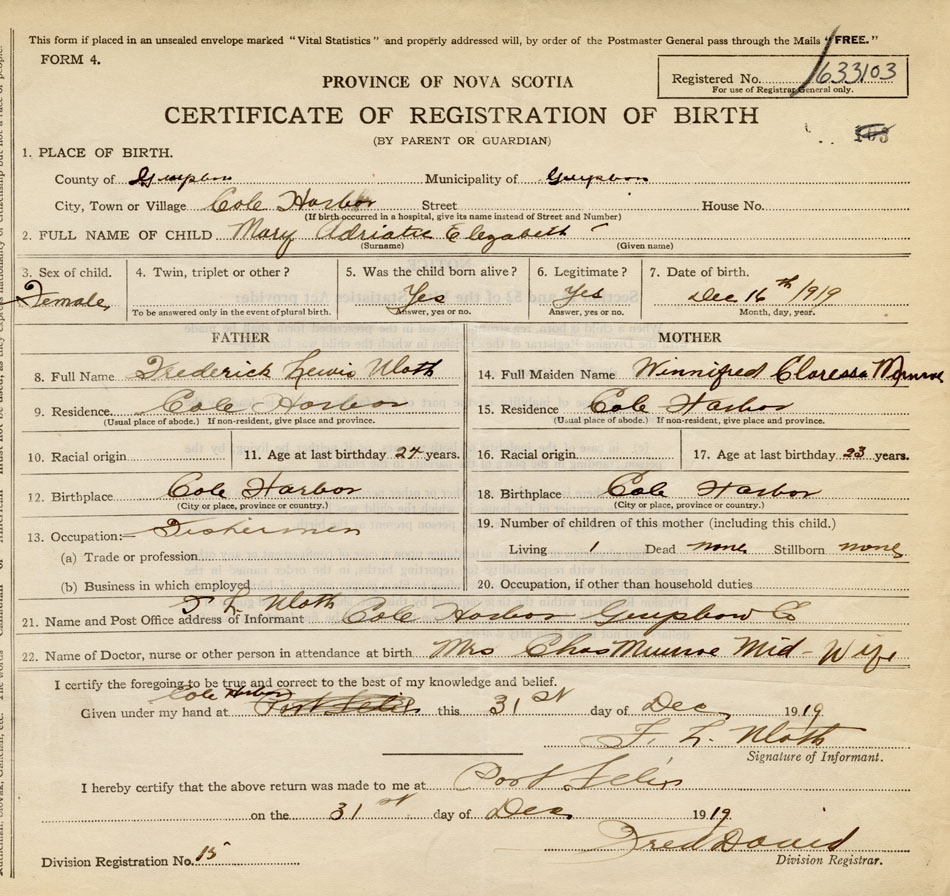 This form if placed in an unsealed envelope marked "Vital Statistics" and properly addressed will, by order of the Postmaster General pass through the Mails "FREE."
FORM 4.
Registered No. 1633103
For use of Registrar General only.
PROVINCE OF NOVA SCOTIA
CERTIFICATE OF REGISTRATION OF BIRTH
(BY PARENT OR GUARDIAN)
103
1. PLACE OF BIRTH.
County of Guysboro Municipality of Guysboro
City, Town or Village Cole Harbor Street House No.
(If birth occurred in a hospital, give its name instead of Street and Number)
2. FULL NAME OF CHILD Mary Adriatic Elezabeth
(Surname) (Given name)
3. Sex of child. 4. Twin, triplet or other? 5. Was the child born alive? 6. Legitimate? 7. Date of birth.
Female Yes Yes Dec 16th 1919
To be answered only in the event of plural birth. Answer, yes or no. Answer, yes or no. Month, day, year.
FATHER MOTHER
8. Full Name Frederick Lewis Uloth 14. Full Maiden Name Winnifred Claressa Munroe
9. Residence. Cole Harbor 15. Residence Cole Harbor
(Usual place of abode.) If non-resident, give place and province. (Usual place of abode.) If non-resident, give place and province.
10. Racial origin 11. Age at last birthday 24 years. 16. Racial origin. 17. Age at last birthday 23 years.
12. Birthplace Cole Harbor 18. Birthplace Cole Harbor
(City or place, province or country.) (City or place, province or country.)
13. Occupation:— Fishermen 19. Number of children of this mother (including this child.)
(a) Trade or profession Living 1 Dead none Stillborn none
(b) Business in which employed 20. Occupation, if other than household duties
21. Name and Post Office address of Informant F L Uloth Cole Harbor Guysboro Co
22. Name of Doctor, nurse or other person in attendance at birth Mrs Chas Munroe Mid-Wife
I certify the foregoing to be true and correct to the best of my knowledge and belief.
Cole Harbor
Given under my hand at Port Felix this 31st day of Dec 1919
F. L. Uloth
Signature of Informant.
I hereby certify that the above return was made to me at Port Felix
on the 31st day of Dec 1919
Fred David
Division Registrar.
Division Registration No. 15